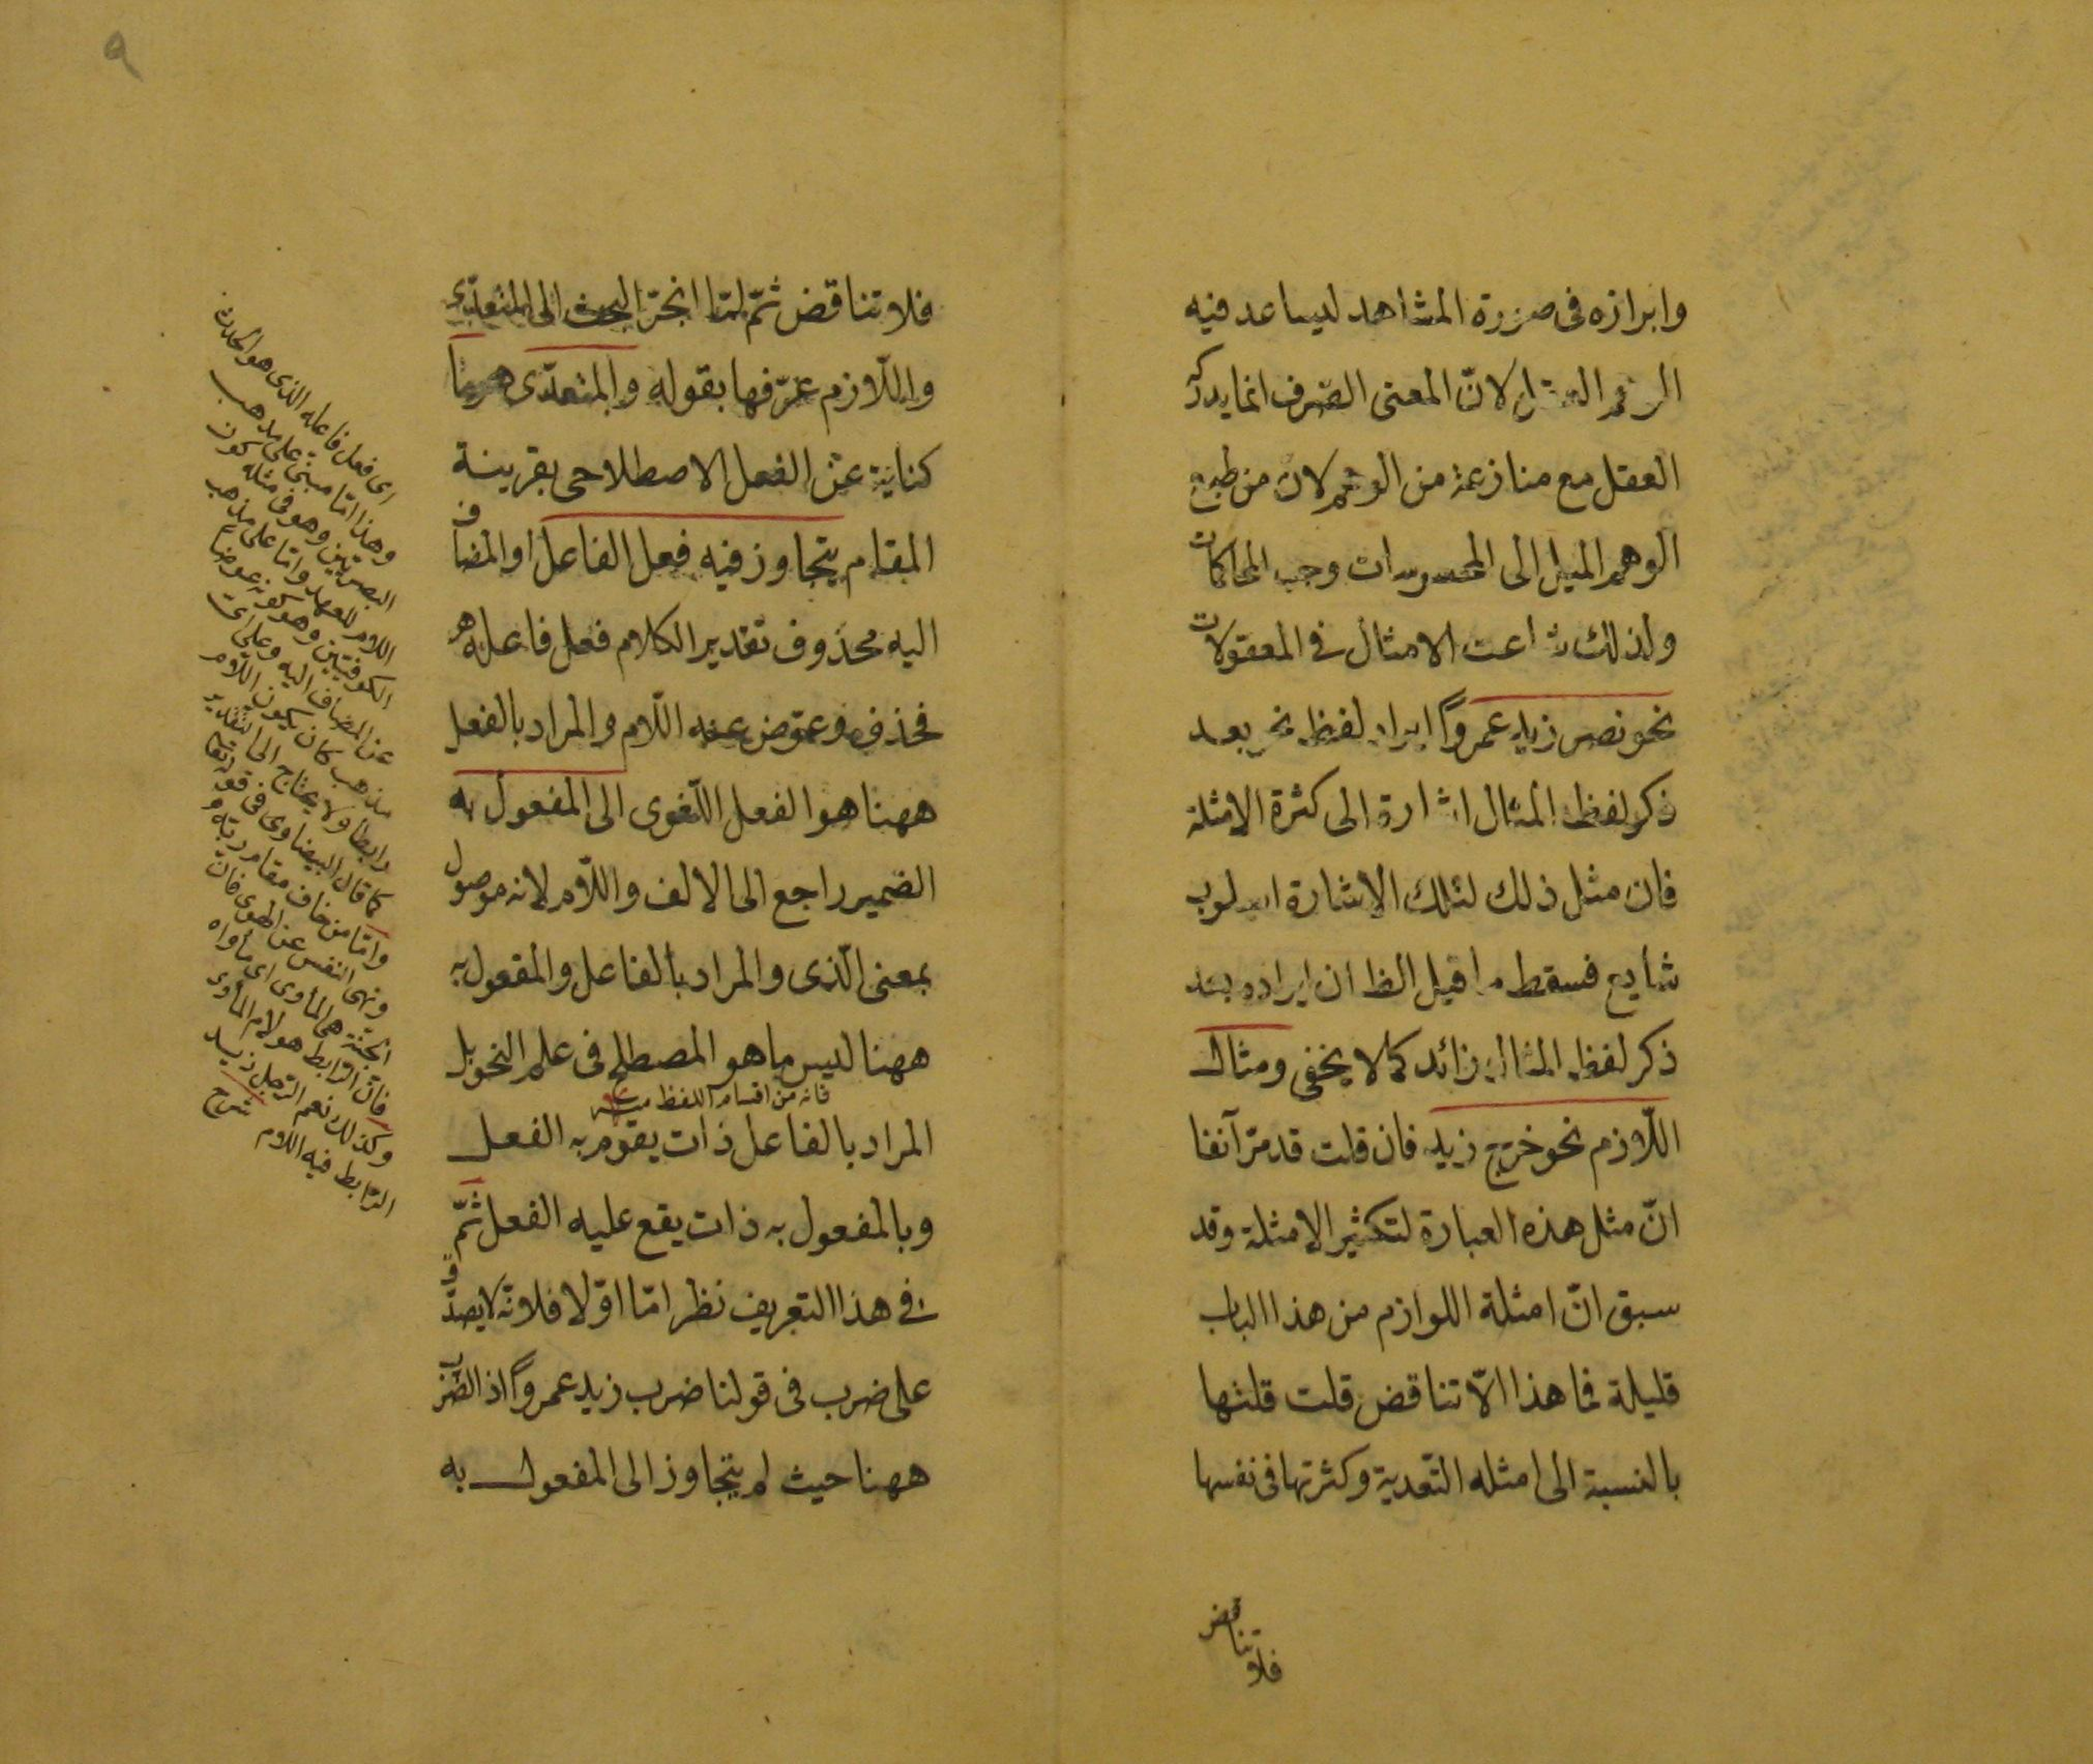 وابرازه فى صورة المشاهد ليساعد فيه
الوهم العقل لانّ المعنى الصّرف انما يدركه
العقل مع منازعة من الوهم لان من طبع
الوهم الميل الى المحسوسات وحب المحاكات
ولذلك شاعت الامثال فى المعقولات
نحو نصر زيد عمرواً ايراد لفظ نحو بعد
ذكر لفظ المثال اشارة الى كثرة الامثلة
فان مثل ذلك لتلك الاشارة اسلوب
شايع فسقط ما قيل الظ ان ايراده بعد
ذكر لفظ المثال زائد كما لا يخفى ومثال
اللّازم نحو خرج زيد فان قلت قد مرّ آنفا
انّ مثل هذه العبارة لتكثير الامثلة وقد
سبق انّ امثلة اللوازم من هذا الباب
قليلة فما هذا الّا تناقض قلت قلتها
بالنسبة الى امثله التّعدية وكثرتها فى نفسها
فلا تناقض
٩
فلا تناقض ثمّ لمّا انجرّ البحث الى المتعدّى
واللّازم عرّفها بقوله والمتعدّى ههنا
كناية عن الفعل الاصطلاحى بقرينة
المقام يتجاوز فيه فعل الفاعل او المضاف
اليه محذوف تقدير الكلام فعل فاعله
فحذف وعوّض عنه اللّام والمراد بالفعل
ههنا هو الفعل اللّغوى الى المفعول به
الضمير راجع الى الالف واللّام لانه موصول
بمعنى الّذى والمراد بالفاعل والمفعول به
ههنا ليس ما هو المصطلح فى علم النحو بل
فانه من اقسام اللفظ
المراد بالفاعل ذات يقوم به الفعل
وبالمفعول به ذات يقع عليه الفعل ثمّ
فى هذا التعريف نظر امّا اوّلا فلانّه لا يصدق
على ضرب فى قولنا ضرب زيد عمرواً اذ الضّرب
ههنا حيث لم يتجاوز الى المفعول به
اى فعل فاعله الذى هو الحدث
وهذا امّا مبنى على مذهب
البصريّين وهو فى مثله كون
اللام للعهد وامّا على مذهب
الكوفيّين وهو كونه عوضا
عن المضاف اليه وعلى اىّ
مذهب كان يكون اللّام
رابطا ولا يحتاج الى التقدير
كما قال البيضاوى فى قوله تعالى
وامّا من خاف مقام ربّه و
ونهى النفس عن الهوى فانّ
الجنّة هى المأوى اى مأواه
فانّ الرّابط هو لام المأوى
وكذلك نعم الرّجل زيد
الرّابط فيه اللّام شرح